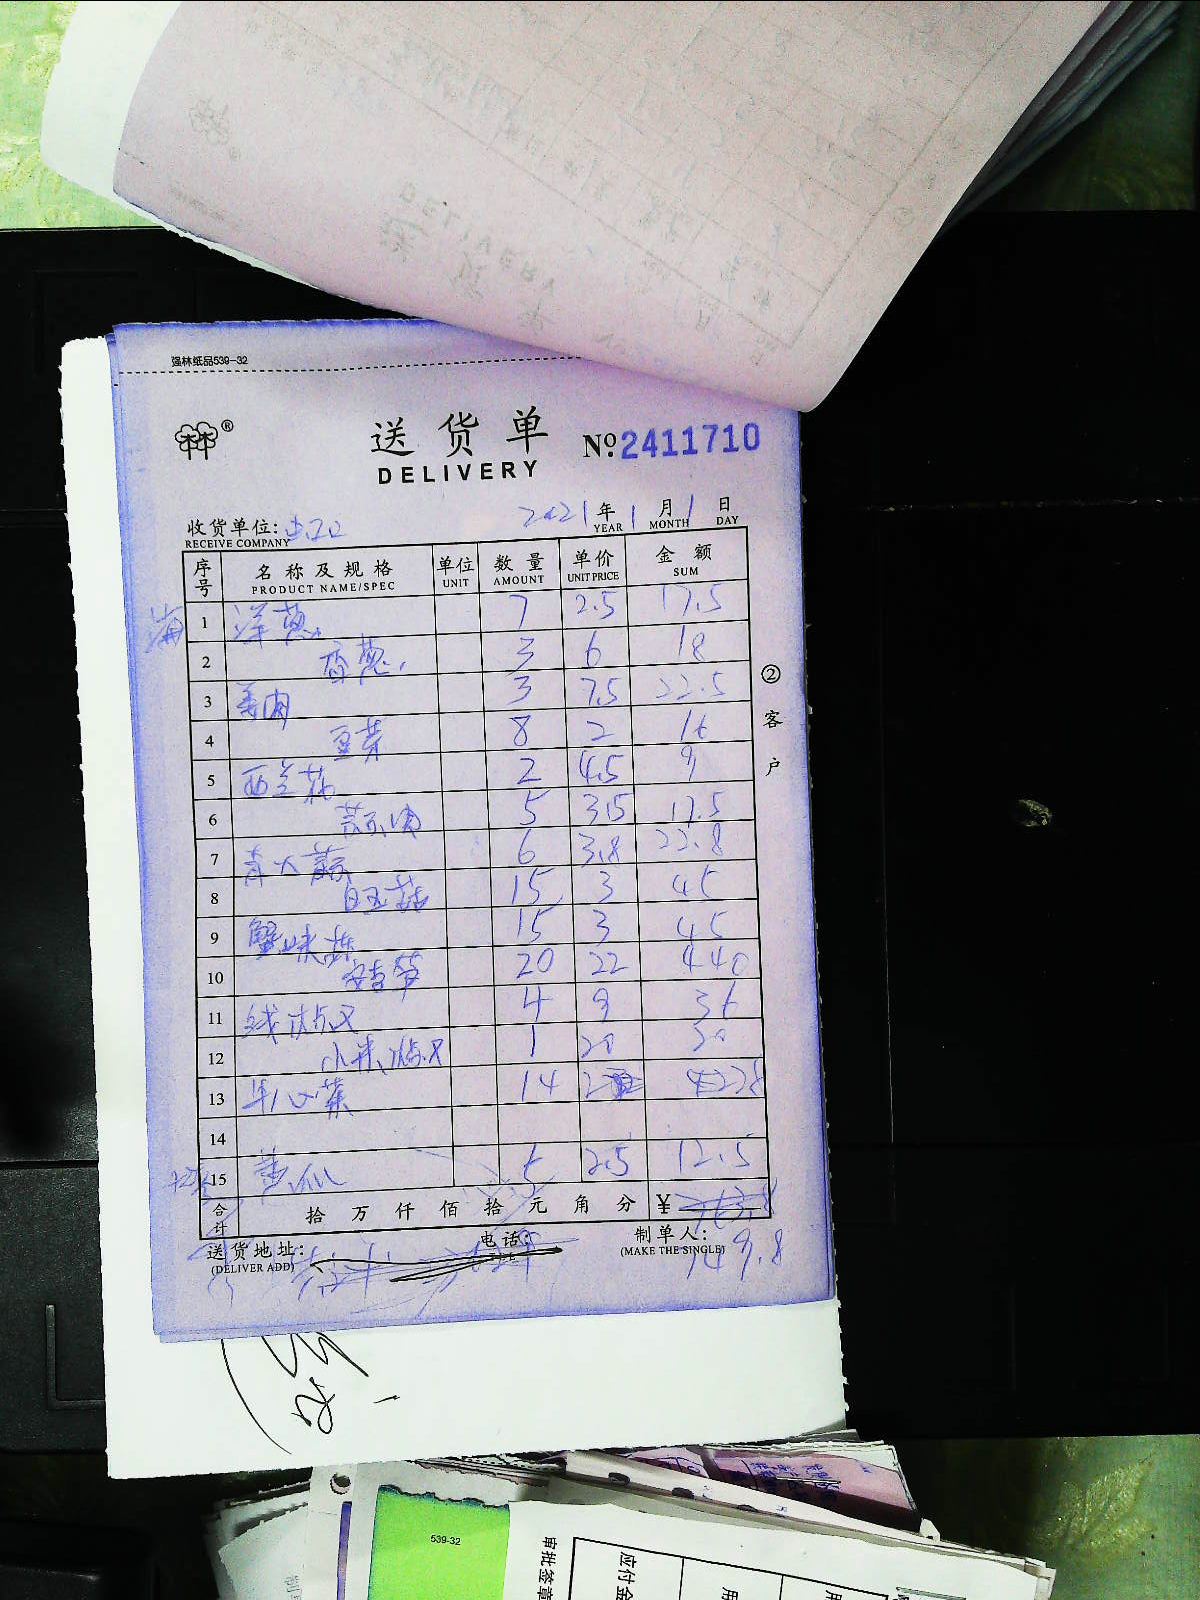 强林纸品539-32
林®
送货单
DELIVERY
№ 2411710
2021年1月1日
YEAR MONTH DAY
收货单位:
RECEIVE COMPANY
序号 名称及规格 单位 数量 单价 金额
PRODUCT NAME/SPEC UNIT AMOUNT UNIT PRICE SUM
1 洋葱 7 2.5 17.5
2 香葱 3 6 18
3 姜肉 3 7.5 22.5
4 豆芽 8 2 16
5 西兰花 2 4.5 9
6 蒜肉 5 3.5 17.5
7 青大蒜 6 3.8 22.8
8 白玉菇 15 3 45
9 蟹味菇 15 3 45
10 安吉笋 20 22 440
11 线椒 4 9 36
12 小米椒 1 20
13 14
14
15 黄瓜 5 2.5 12.5
合计 拾万仟佰拾元角分 ¥
749.8
送货地址: 电话: 制单人:
(DELIVER ADD) (MAKE THE SINGLE)
②客户
539-32
审批签章
应付金